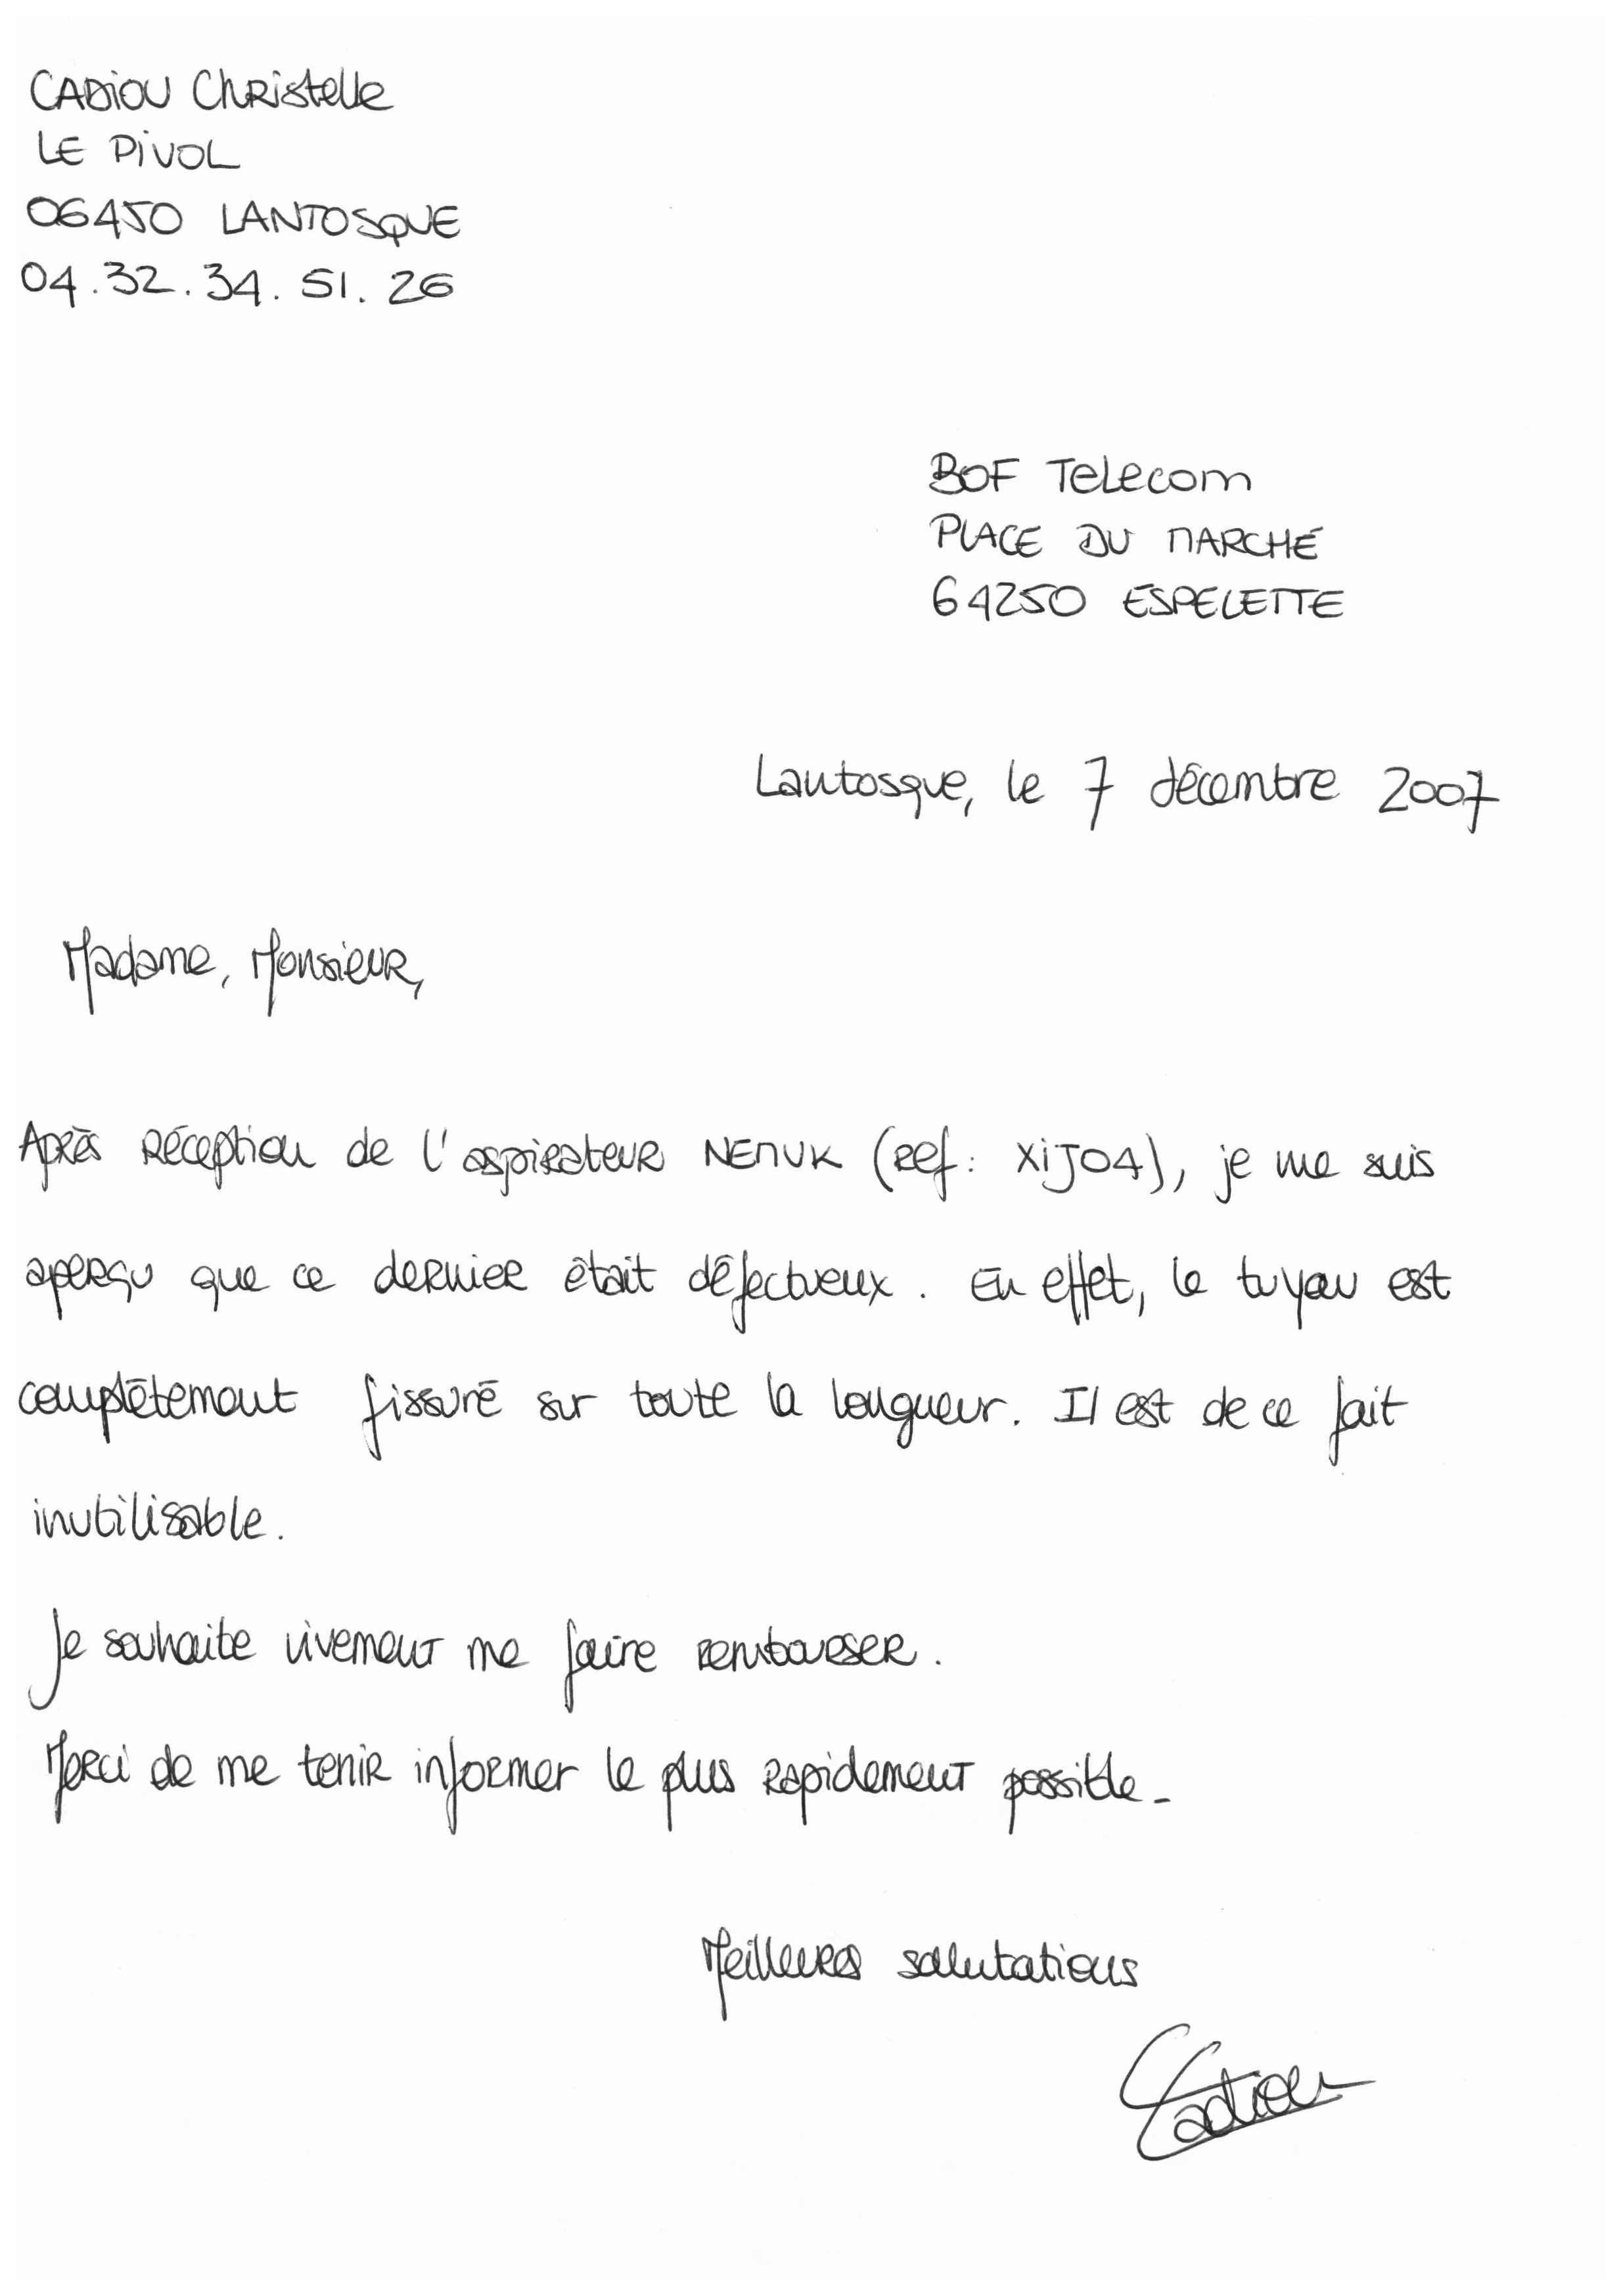 CADIOU Christelle
LE PIVOL
06450 LANTOSQUE
04.32.34.51.26
BOF Telecom
PLACE DU MARCHÉ
64250 ESPELETTE
Lantosque, le 7 décembre 2007
Madame, Monsieur,
Après réception de l'aspirateur NEMUK (ref: XIJ04), je me suis
aperçu que ce dernier était défectueux. En effet, le tuyau est
complètement fissuré sur toute la longueur. Il est de ce fait
inutilisable.
Je souhaite vivement me faire rembourser.
Merci de me tenir informer le plus rapidement possible.
Meilleures salutations
Cadiou